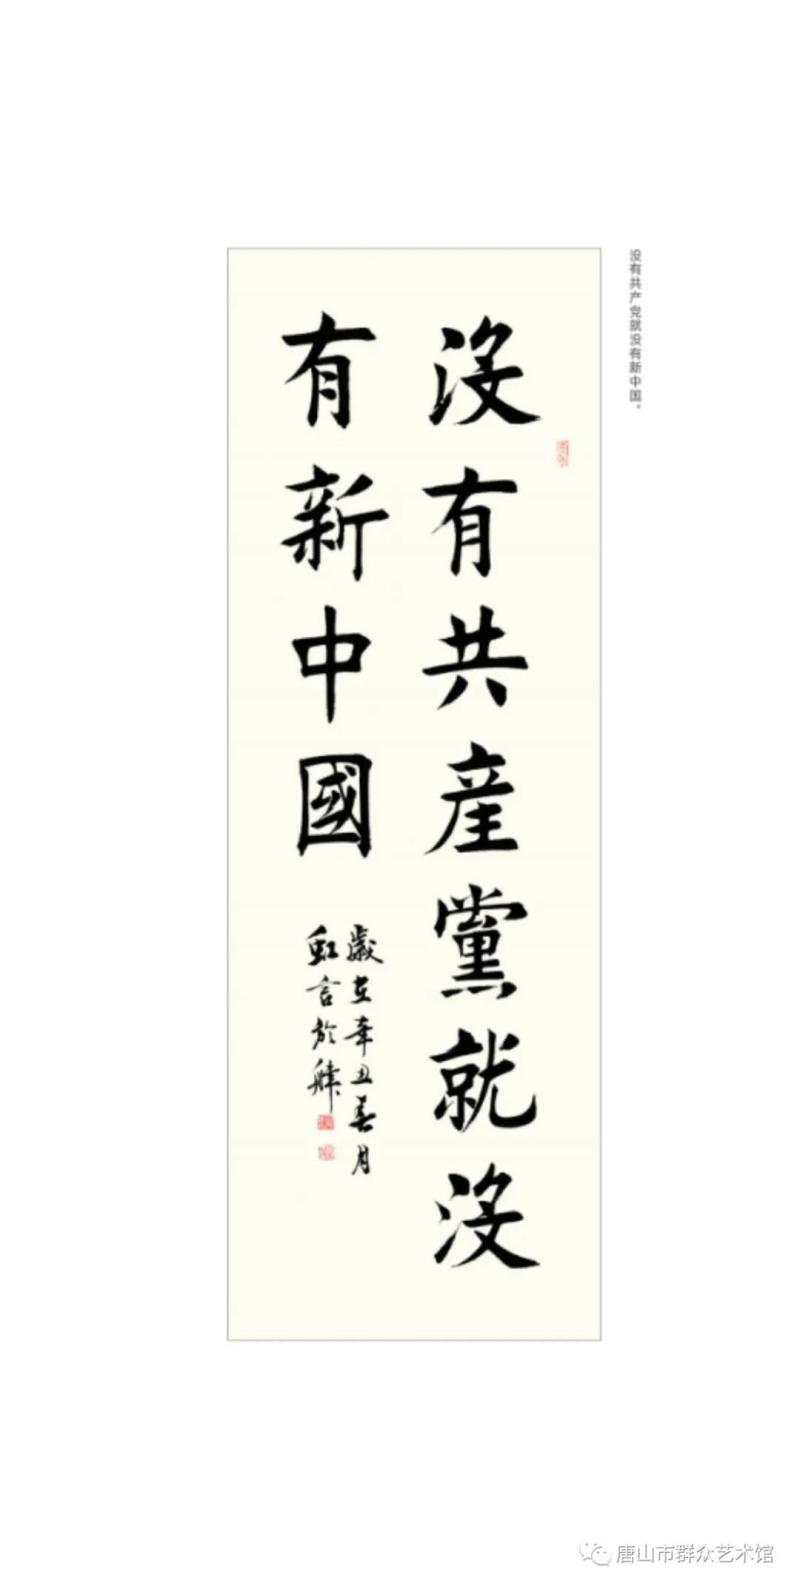 没有共产党就没有新中国。
沒有共産黨就沒
有新中國
歲在辛丑春月
虹言於
唐山市群众艺术馆